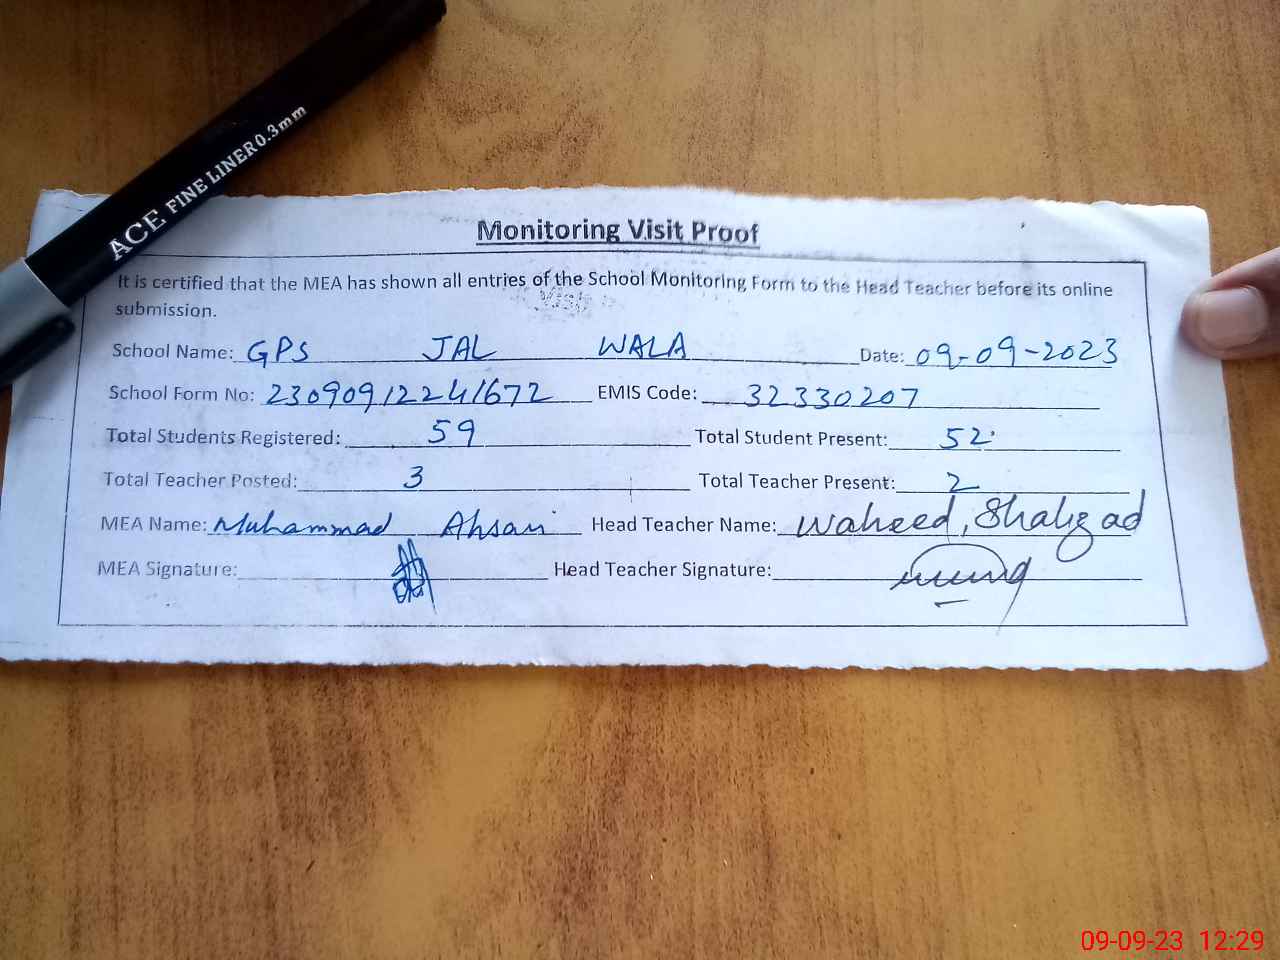 ACE FINE LINER 0.3mm
Monitoring Visit Proof
It is certified that the MEA has shown all entries of the School Monitoring Form to the Head Teacher before its online
submission.
School Name: GPS JAL WALA Date: 09-09-2023
School Form No: 230909122241672 EMIS Code: 32330207
Total Students Registered: 59 Total Student Present: 52
Total Teacher Posted: 3 Total Teacher Present: 2
MEA Name: Muhammad Ahsan Head Teacher Name: Waheed, Shahzad
MEA Signature: Head Teacher Signature:
09-09-23 12:29